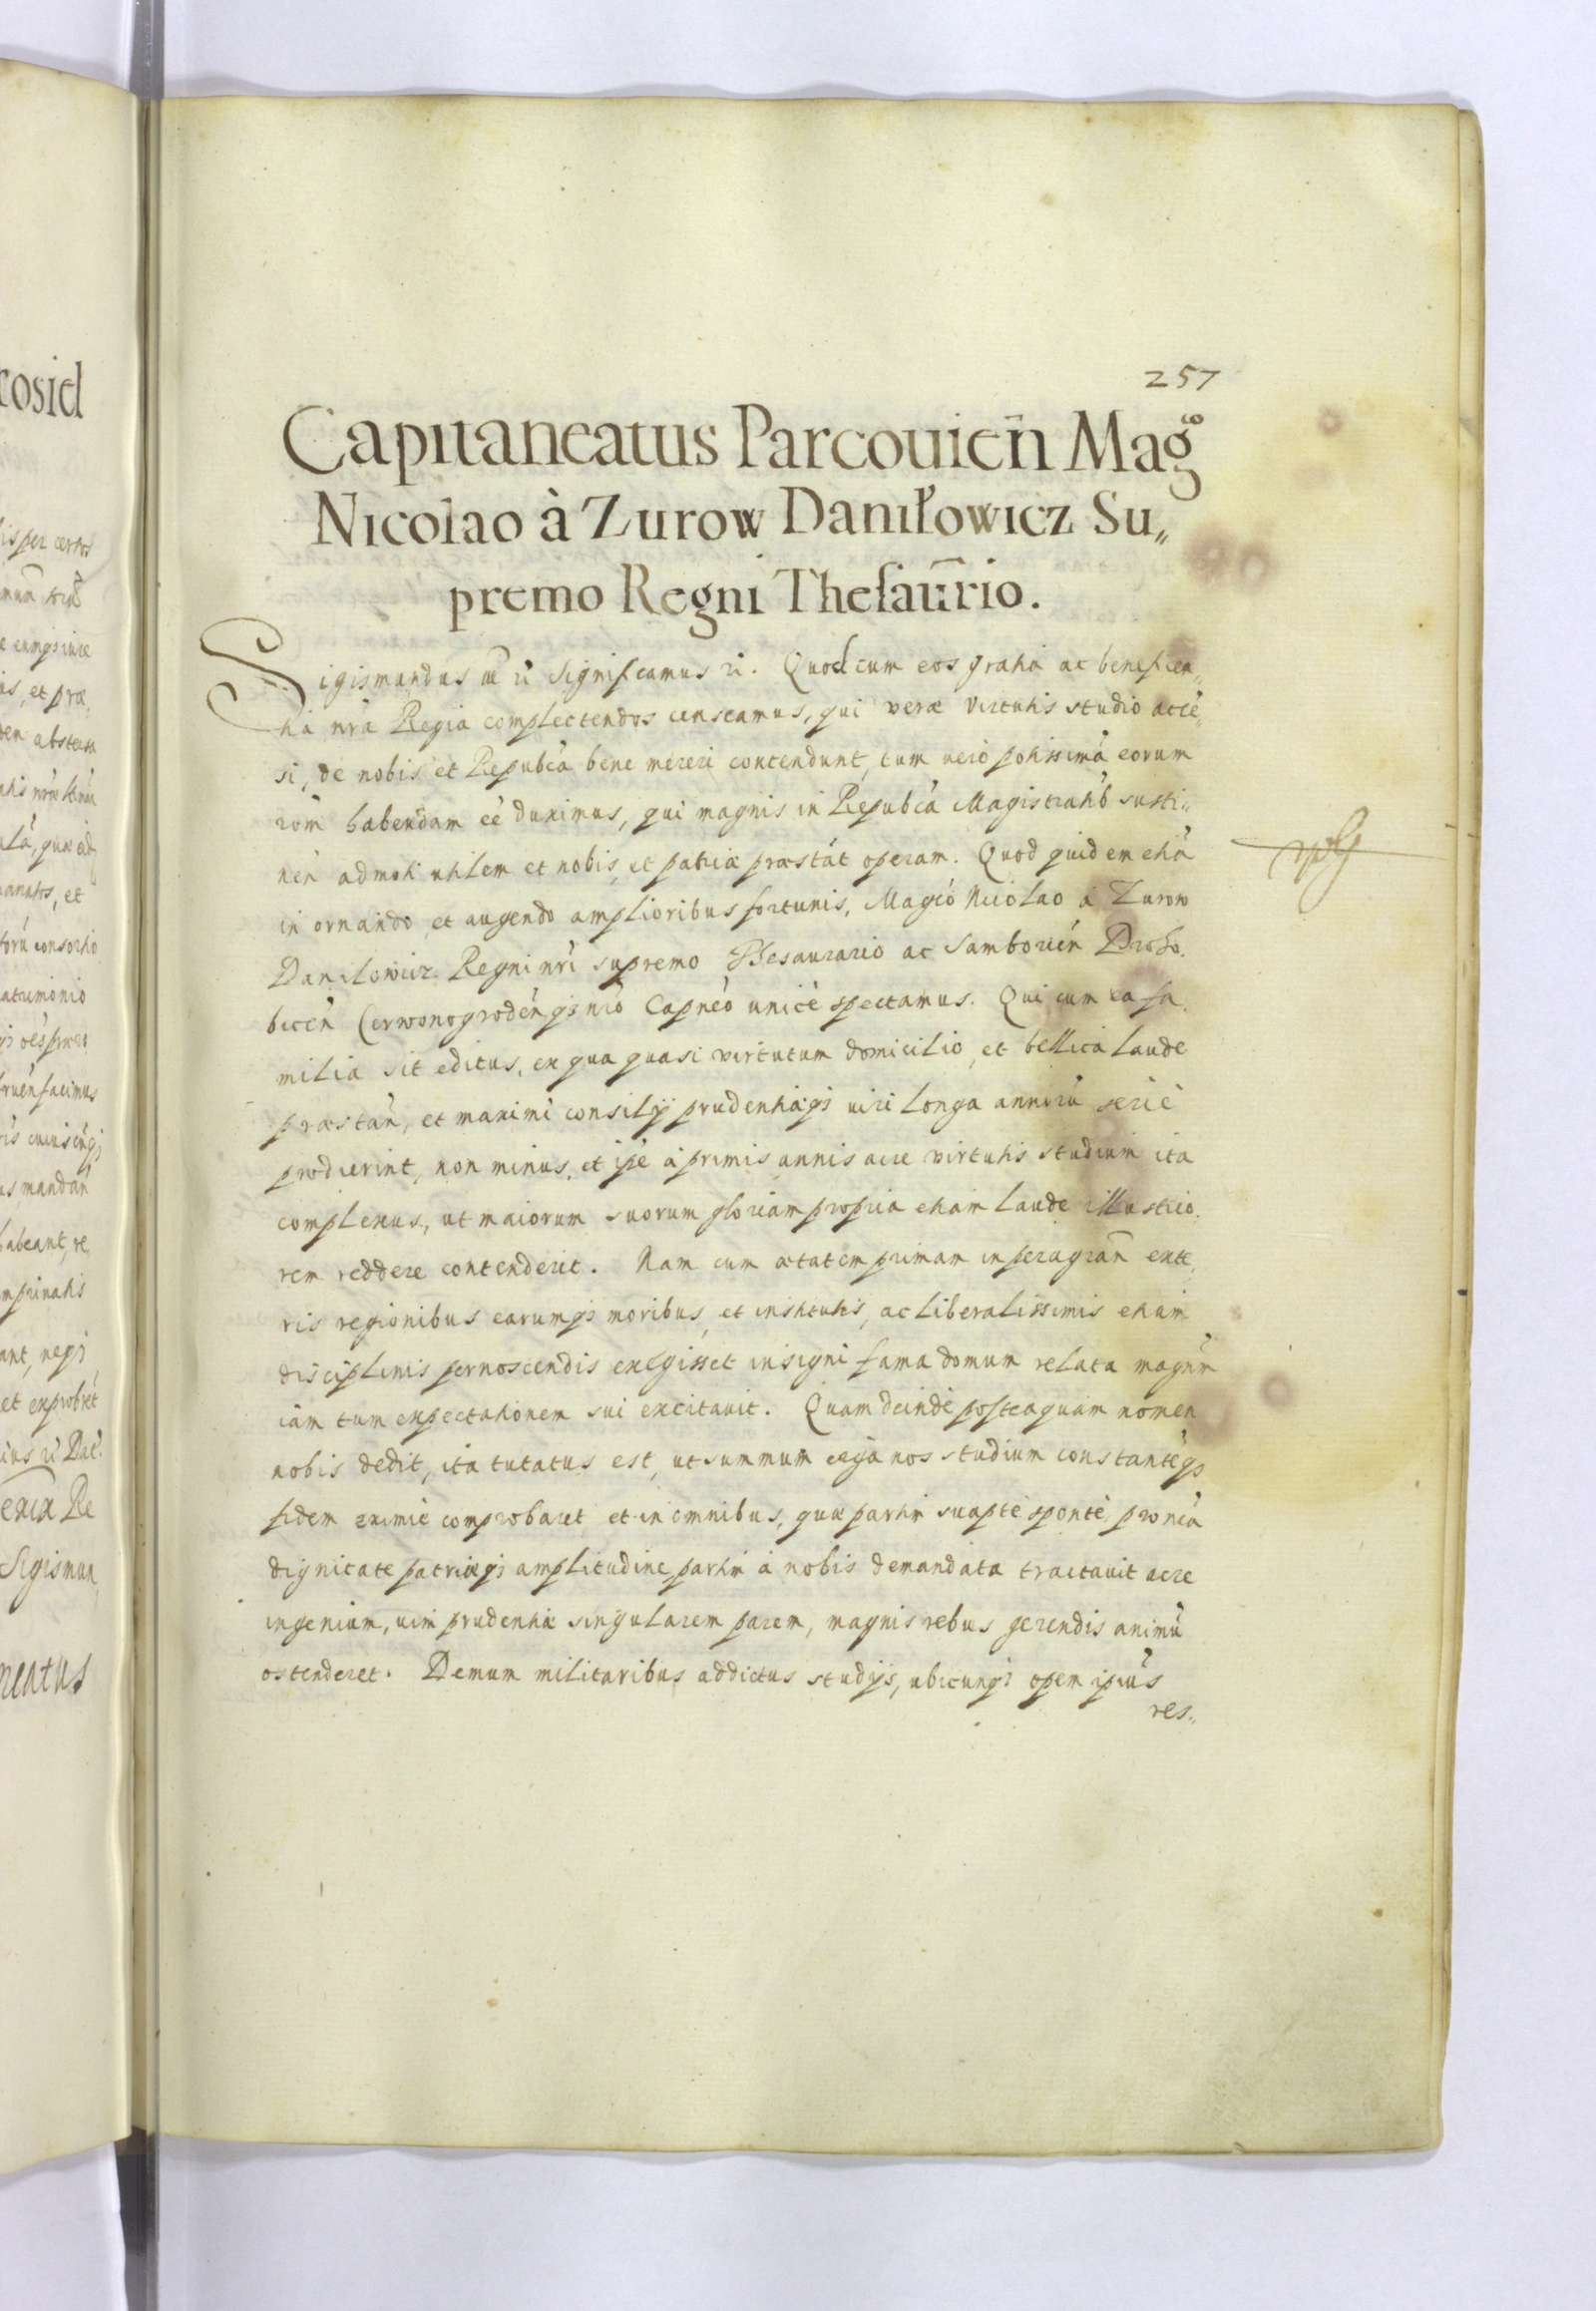 257
Capitaneatus Parcouień Mag⁰
Nicolao à Zurow Daniłowicz Su„
premo Regni Thesaur̄io.
Sigismundus significamus Quod cum eos gratia ac beneficen„
tia nr̃a Regia complectendos censeamus, qui veræ virtutis studio acce„
si, de nobis et Repub̃ca bene mereri contendunt, tum vero potissimã eorum
rõm habendam eẽ duximus, qui magnis in Repub̃ca Magistratib̃ susti„
neñ admoti utilem et nobis, et patriæ præstãt operam. Quod quidem etiã
in ornando et augendo amplioribus fortunis, Mag̃co Nicolao a Zurow
Danilowicz Regni nr̃i supremo Thesaurario ac Samborień Droho„
bicẽn Czerwonogrodẽnq₃ nr̃o Capnẽo unicè spectamus. Qui cum ea fa„
milia sit editus, ex qua quasi virtutum domicilio, et bellica laude
præstañ, et maximi consilij prudentiæq₃ viri longa annorũ seriè
prodierint, non minus, et ip̃e à primis annis acre virtutis studium ita
complexus, ut maiorum suorum gloriam propria etiam laude illustrio„
rem reddere contenderit. Nam cum ætatem primam in peragrañ exte„
ris regionibus earumq₃ moribus, et institutis, ac liberalissimis etiam
disciplinis pernoscendis exegisset insigni fama domum relata magnm̃
iam tum expectationem sui excitavit. Quam deinde posteaquam nomen
nobis dedit, ita tutatus est, ut summum erga nos studium constantẽq₃
fidem eximiè comprobaret et in omnibus, quæ partim suapte spontè, pro nr̃a
dignitate patriæq₃ amplitudine, partim à nobis demandata tractavit acre
ingenium, vim prudentiæ singularem parem, magnis rebus gerendis animũ
ostenderet. Demum militaribus addictus studijs, ubicunq₃ opem ip̃ius
res„